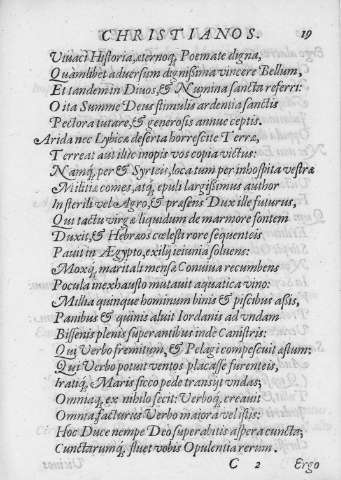 CHRISTIANOS. 19
Viuaci Historia, æternoq́; Poemate digna,
Quamlibet aduersum dignissima vincere Bellum,
Et tandem in Diuos, & Numina sancta referri:
O ita Summe Deus stimulis ardentia sanctis
Pectora tutare, & generosis annue ceptis.
Arida nec Lybicæ deserta horrescite Terræ,
Terreat aut illic inopis vos copia victus:
Namq́; per & Syrteis, loca tum per inhospita vestræ
Militiæ comes, atq́; epuli largissimus author
In sterili velo Agro, & præsens Dux ille futurus,
Qui tactu virgæ liquidum de marmore fontem
Duxit, & Hebræos cœlesti rore sequenteis
Pauit in Ægypto, exilij ieiunia soluens:
Moxq́; maritali mensæ Conuiua recumbens
Pocula inexhausto mutauit aquatica vino:
Millia quinque hominum binis & piscibus assis,
Panibus & quinis aluit Iordanis ad vndam
Bissenis plenis superantibus inde Canistris:
Qui Verbo fremitum, & Pelagi compescuit æstum:
Qui Verbo potuit ventos placasse furenteis,
Iratiq́; Maris sicco pede transijt vndas;
Omniaq́; ex nihilo fecit: Verboq́; creauit
Omnia, facturus Verbo maiora vel istis:
Hoc Duce nempe Deo superabitis aspera cuncta;
Cunctarumq́; fluet vobis Opulentia rerum.
C 2 Ergo